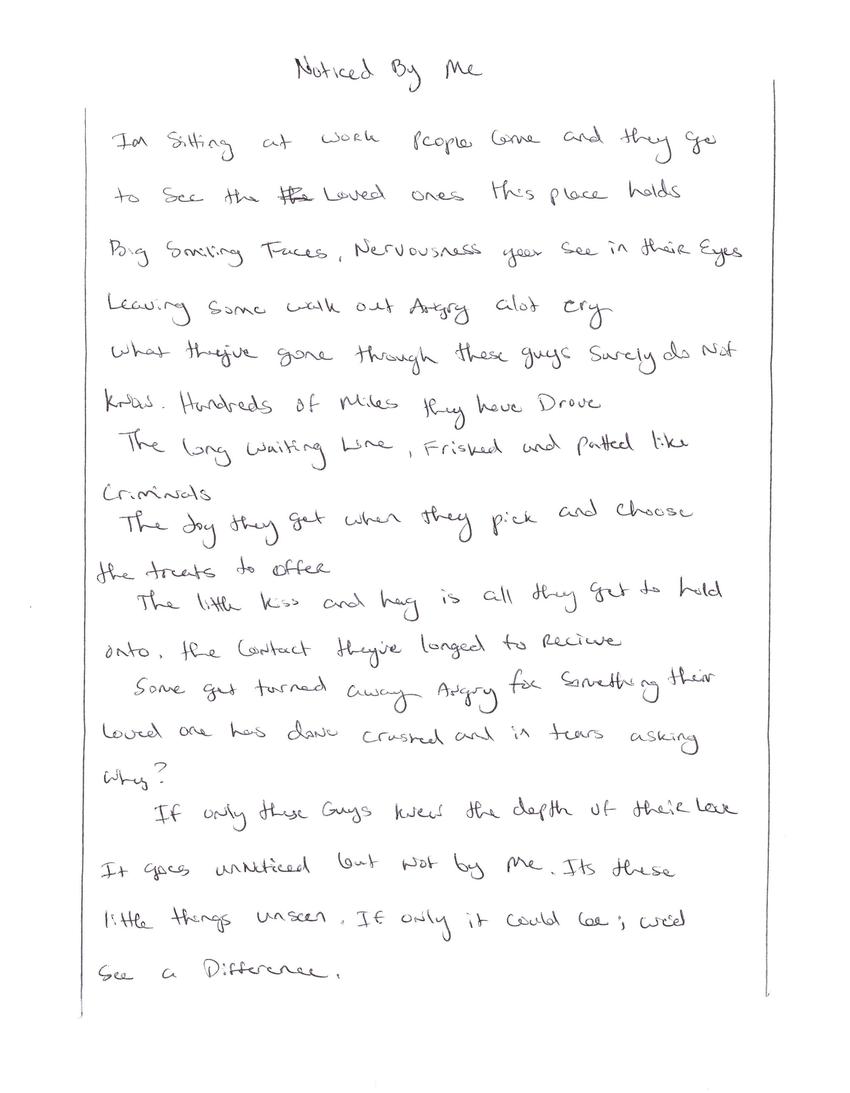 Noticed By Me
Im Sitting at work People Come and they go
to See the the Loved ones this place holds
Big Smiling Faces, Nervousness you see in their Eyes
Leaving some walk out Angry alot cry
what they've gone through these guys Surely do Not
know. Hundreds of Miles they have Drove
The long waiting Line, Frisked and patted like
Criminals
The Joy they get when they pick and choose
the treats to offer
The little kiss and hug is all they get to hold
onto. the contact they've longed to Recieve
Some get turned away Angry for Something their
loved one has done crushed and in tears asking
why?
If only these Guys knew the depth of their love
It goes unNoticed but Not by Me. Its these
little things unseen. If only it could be; we'd
See a Difference.